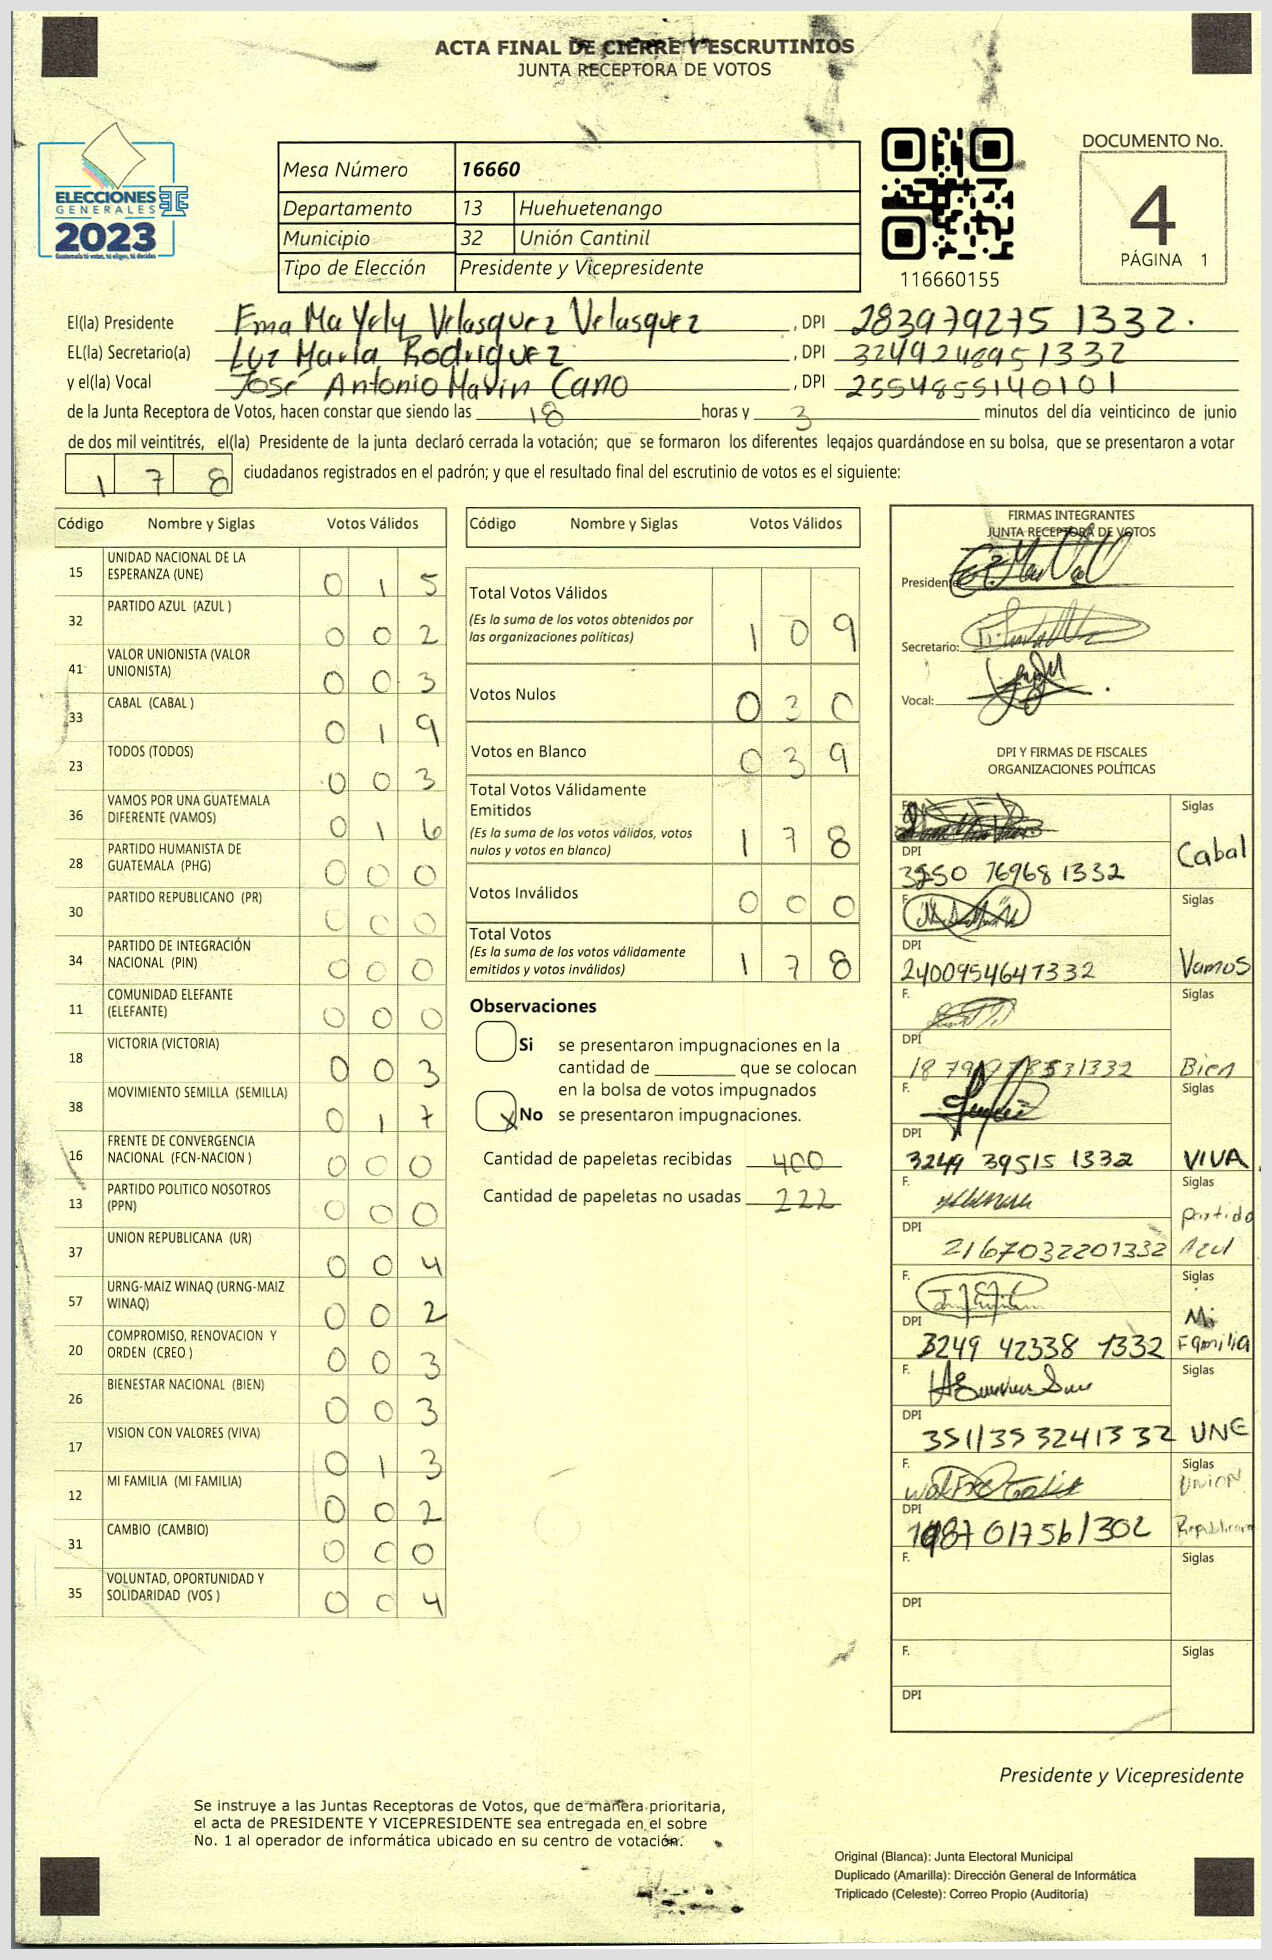 ACTA FINAL DE CIERRE Y ESCRUTINIOS
JUNTA RECEPTORA DE VOTOS
ELECCIONES
GENERALES
2023
Guatemala tú votas, tú eliges, tú decides
Mesa Número 16660
Departamento 13 Huehuetenango
Municipio 32 Unión Cantinil
Tipo de Elección Presidente y Vicepresidente
116660155
DOCUMENTO No.
4
PÁGINA 1
El(la) Presidente Ema Mayely Velasquez Velasquez , DPI 283979275 1332.
EL(la) Secretario(a) Luz María Rodriguez , DPI 3249248951332
y el(la) Vocal José Antonio Marin Cano , DPI 2554855140101
de la Junta Receptora de Votos, hacen constar que siendo las 18 horas y 3 minutos del día veinticinco de junio
de dos mil veintitrés, el(la) Presidente de la junta declaró cerrada la votación; que se formaron los diferentes legajos guardándose en su bolsa, que se presentaron a votar
1 7 8 ciudadanos registrados en el padrón; y que el resultado final del escrutinio de votos es el siguiente:
Código Nombre y Siglas Votos Válidos
15 UNIDAD NACIONAL DE LA ESPERANZA (UNE) 0 1 5
32 PARTIDO AZUL (AZUL ) 0 0 2
41 VALOR UNIONISTA (VALOR UNIONISTA) 0 0 3
33 CABAL (CABAL ) 0 1 9
23 TODOS (TODOS) 0 0 3
36 VAMOS POR UNA GUATEMALA DIFERENTE (VAMOS) 0 1 6
28 PARTIDO HUMANISTA DE GUATEMALA (PHG) 0 0 0
30 PARTIDO REPUBLICANO (PR) 0 0 0
34 PARTIDO DE INTEGRACIÓN NACIONAL (PIN) 0 0 0
11 COMUNIDAD ELEFANTE (ELEFANTE) 0 0 0
18 VICTORIA (VICTORIA) 0 0 3
38 MOVIMIENTO SEMILLA (SEMILLA) 0 1 7
16 FRENTE DE CONVERGENCIA NACIONAL (FCN-NACION ) 0 0 0
13 PARTIDO POLITICO NOSOTROS (PPN) 0 0 0
37 UNION REPUBLICANA (UR) 0 0 4
57 URNG-MAIZ WINAQ (URNG-MAIZ WINAQ) 0 0 2
20 COMPROMISO, RENOVACION Y ORDEN (CREO ) 0 0 3
26 BIENESTAR NACIONAL (BIEN) 0 0 3
17 VISION CON VALORES (VIVA) 0 1 3
12 MI FAMILIA (MI FAMILIA) 0 0 2
31 CAMBIO (CAMBIO) 0 0 0
35 VOLUNTAD, OPORTUNIDAD Y SOLIDARIDAD (VOS ) 0 0 4
Código Nombre y Siglas Votos Válidos
Total Votos Válidos 1 0 9
(Es la suma de los votos obtenidos por
las organizaciones políticas)
Votos Nulos 0 3 0
Votos en Blanco 0 3 9
Total Votos Válidamente
Emitidos 1 7 8
(Es la suma de los votos válidos, votos
nulos y votos en blanco)
Votos Inválidos 0 0 0
Total Votos 1 7 8
(Es la suma de los votos válidamente
emitidos y votos inválidos)
Observaciones
Si se presentaron impugnaciones en la
cantidad de ________ que se colocan
en la bolsa de votos impugnados
X No se presentaron impugnaciones.
Cantidad de papeletas recibidas 400
Cantidad de papeletas no usadas 222
FIRMAS INTEGRANTES
JUNTA RECEPTORA DE VOTOS
Presidente:
Secretario:
Vocal:
DPI Y FIRMAS DE FISCALES
ORGANIZACIONES POLÍTICAS
F. Siglas
Cabal
DPI
3250 76968 1332
F. Siglas
DPI
2400954641332 Vamos
F. Siglas
DPI
Bien
F. Siglas
DPI
3249 39515 1332 VIVA
F. Siglas
partido
DPI
2167032201332 Azul
F. Siglas
Mi
DPI
3249 42338 1332 Familia
F. Siglas
DPI
3511353241332 UNE
F. Siglas
Union
DPI
Republicana
F. Siglas
DPI
F. Siglas
DPI
Presidente y Vicepresidente
Se instruye a las Juntas Receptoras de Votos, que de manera prioritaria,
el acta de PRESIDENTE Y VICEPRESIDENTE sea entregada en el sobre
No. 1 al operador de informática ubicado en su centro de votación.
Original (Blanca): Junta Electoral Municipal
Duplicado (Amarilla): Dirección General de Informática
Triplicado (Celeste): Correo Propio (Auditoría)